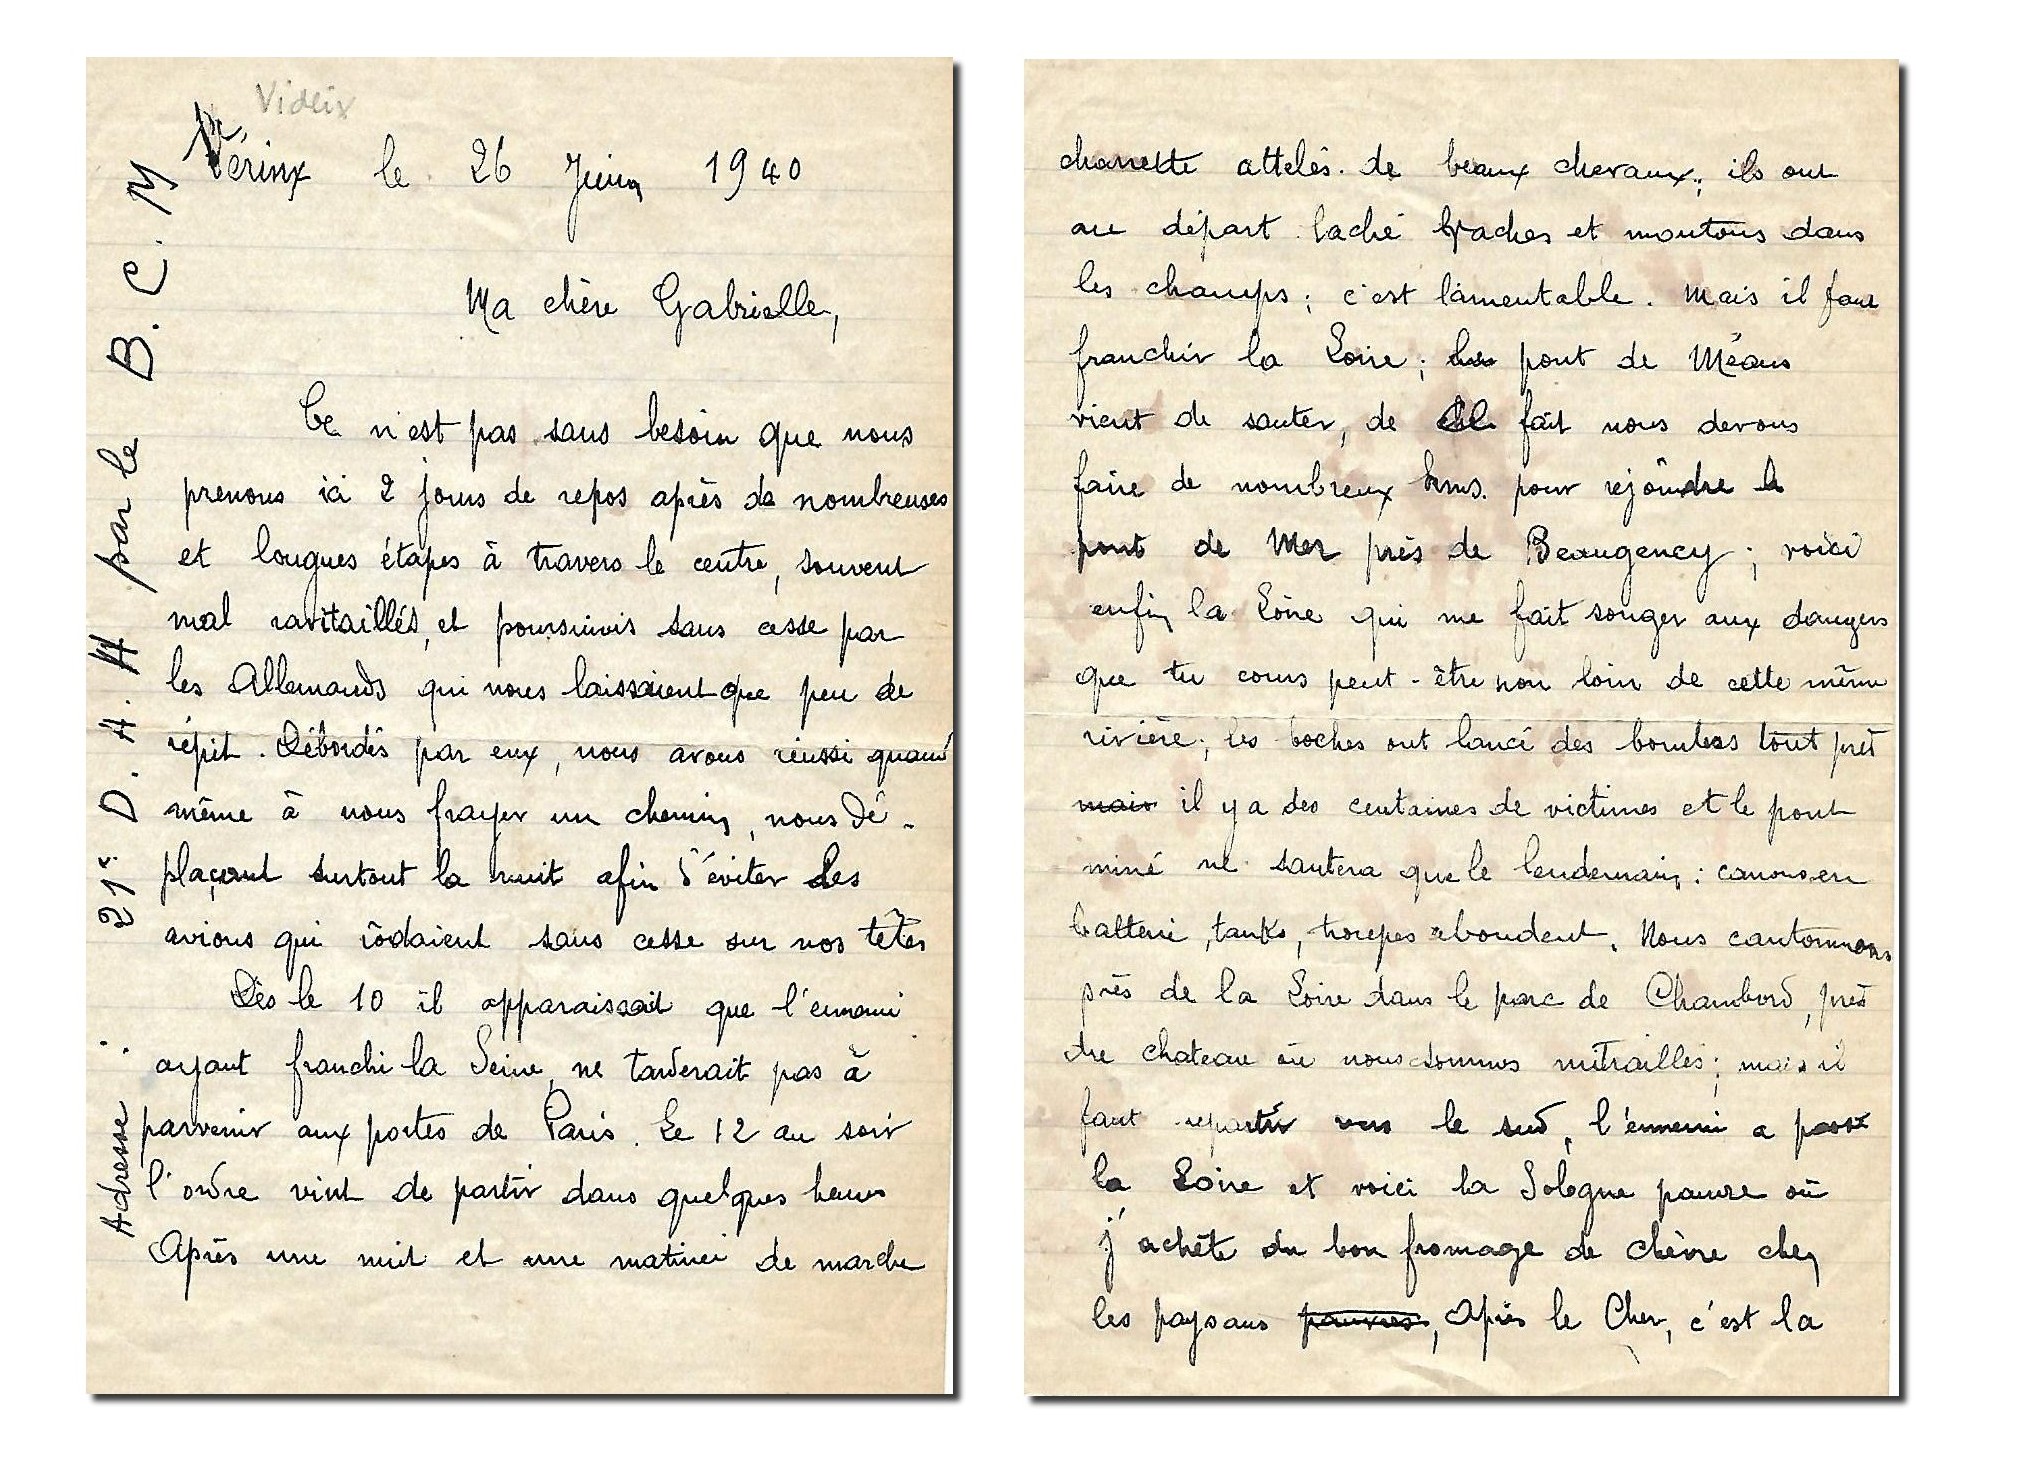 Videix
Vérinx le 26 Juin 1940
Ma chère Gabrielle,
Ce n'est pas sans besoin que nous
prenons ici 2 jours de repos après de nombreuses
et longues étapes à travers le centre, souvent
mal ravitaillés, et poursuivis sans cesse par
les Allemands qui nous laissaient que peu de
répit. Débordés par eux, nous avons réussi quand
même à nous frayer un chemin, nous dé-
plaçant surtout la nuit afin d'éviter les
avions qui rôdaient sans cesse sur nos têtes
Dès le 10 il apparaissait que l'ennemi
ayant franchi la Seine, ne tarderait pas à
parvenir aux portes de Paris. Le 12 au soir
l'ordre vint de partir dans quelques heures
Après une nuit et une matinée de marche
Adresse : 21e D. A. H par le B. C. M
charrette attelés de beaux chevaux; ils ont
au départ laché vaches et moutons dans
les champs; c'est lamentable. Mais il faut
franchir la Loire; pont de Méans
vient de sauter, de fait nous devons
faire de nombreux kms. pour rejoindre le
pont de Mer près de Beaugency; voici
enfin la Loire qui me fait songer aux dangers
que tu cours peut-être non loin de cette même
rivière; les boches ont lancé des bombes tout prêt
mais il y a des centaines de victimes et le pont
miné ne sautera que le lendemain; canons en
batterie, tanks, troupes abondent. Nous cantonnons
près de la Loire dans le parc de Chambord, près
du chateau où nous sommes mitraillés; mais il
faut repartir vers le sud, l'ennemi a passé
la Loire et voici la Sologne pauvre où
j'achète du bon fromage de chèvre chez
les paysans pauvres, Après le Cher, c'est la